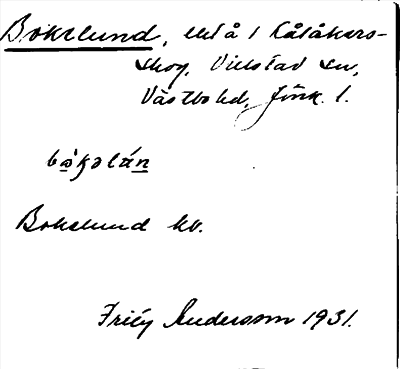 Bokelund, utå i Kålåkers-
skog, Villstad sn,
Västbo hd, Jönk. l.
Bokelund kv.
Frity Andersson 1931.